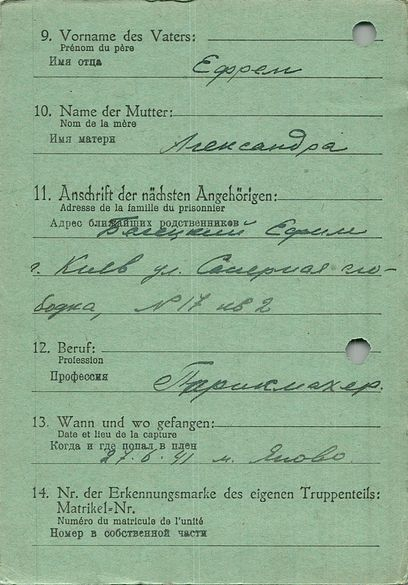 9. Vorname des Vaters:
Prénom du père
Имя отца
Ефрем
10. Name der Mutter:
Nom de la mère
Имя матери
Александра
11. Anschrift der nächsten Angehörigen:
Adresse de la famille du prisonnier
Адрес ближайших родственников
Белецкий Ефим
г. Киев ул. Саперная сло-
бодка, №17 кв 2
12. Beruf:
Profession
Профессия
Паррикмахер.
13. Wann und wo gefangen:
Date et lieu de la capture
Когда и где попал в плен
27.6.41 м.
14. Nr. der Erkennungsmarke des eigenen Truppenteils:
Matrikel=Nr.
Numéro du matricule de l'unité
Номер в собственной части